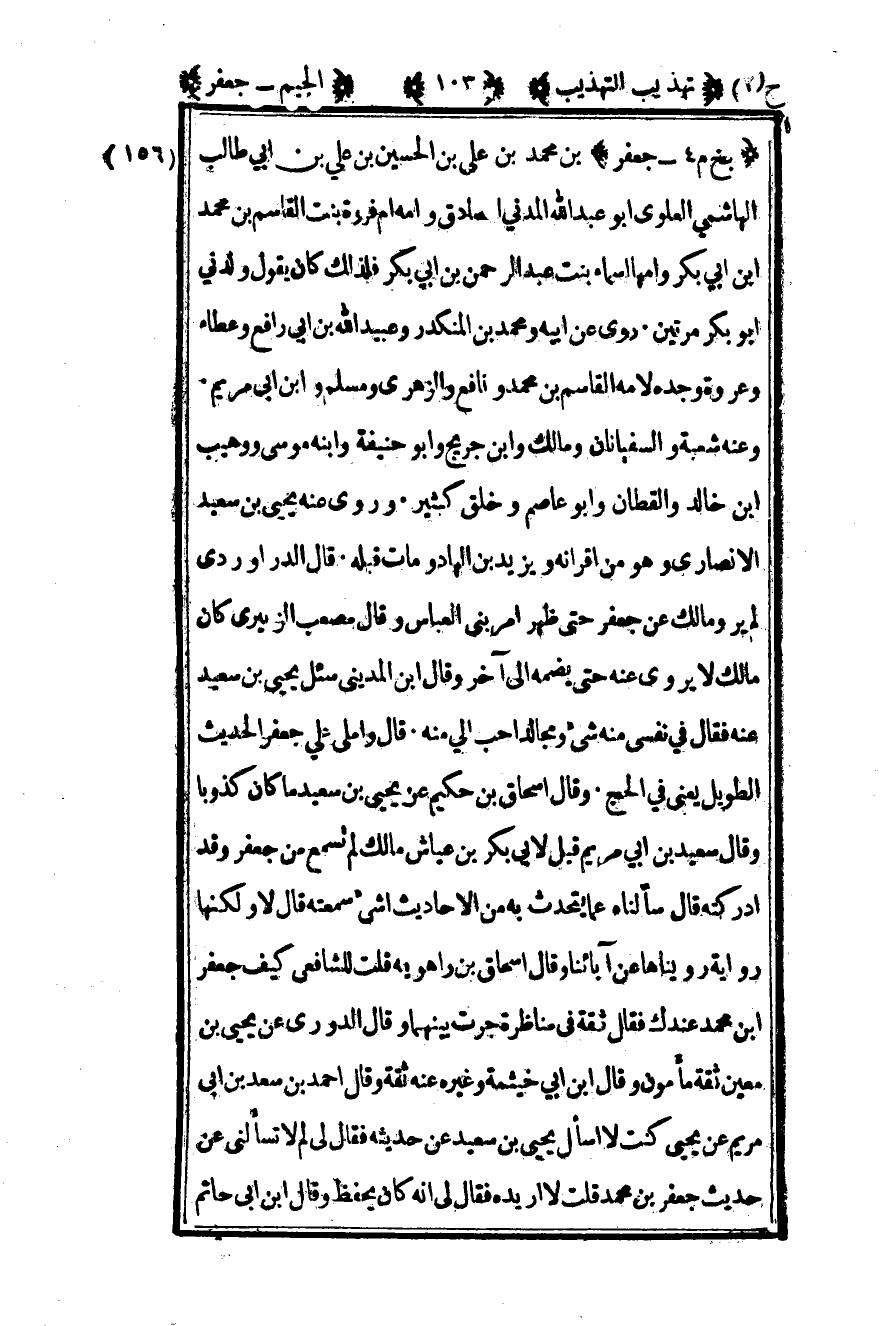 ج(٢) ﴿ تهذيب التهذيب ﴾ ﴿ ١٠٣ ﴾ ﴿ الجيم - جعفر ﴾
﴿ بخ م ٤ - جعفر ﴾ بن محمد بن على بن الحسين بن علي بن ابي طالب (١٥٦)
الهاشمي العلوى ابو عبدالله المدني الصادق وامه ام فروة بنت القاسم بن محمد
ابن ابي بكر وامها اسماء بنت عبد الرحمن بن ابي بكر فلذلك كان يقول ولدني
ابو بكر مرتين . روى عن ابيه ومحمد بن المنكدر وعبيدالله بن ابي رافع وعطاء
وعروة وجده لامه القاسم بن محمد و نافع والزهرى ومسلم و ابن ابي مريم .
وعنه شعبة و السفيانان ومالك وابن جريج وابو حنيفة وابنه موسى ووهيب
ابن خالد والقطان وابو عاصم و خلق كثير . و روى عنه يحيى بن سعيد
الانصارى وهو من اقرانه ويزيد بن الهاد و مات قبله . قال الدراوردى
لم يرو مالك عن جعفر حتى ظهر امر بنى العباس و قال مصعب الزبيرى كان
مالك لا يروى عنه حتى يضمه الى آخر وقال ابن المدينى سئل يحيى بن سعيد
عنه فقال في نفسى منه شئ ومجالد احب الي منه . قال واملى علي جعفر الحديث
الطويل يعنى في الحج . وقال اسحاق بن حكيم عن يحيى بن سعيد ما كان كذوبا
وقال سعيد بن ابي مريم قيل لابي بكر بن عياش مالك لم تسمع من جعفر وقد
ادركته قال سألناه عما يتحدث به من الاحاديث اشئ سمعته قال لا و لكنها
رواية رويناها عن آبائنا وقال اسحاق بن راهويه قلت للشافعى كيف جعفر
ابن محمد عندك فقال ثقة فى مناظرة جرت بينهما وقال الدورى عن يحيى بن
معين ثقة مأمون و قال ابن ابي خيثمة وغيره عنه ثقة وقال احمد بن سعد بن ابى
مريم عن يحيى كنت لا اسأل يحيى بن سعيد عن حديثه فقال لى لم لا تسألنى عن
حديث جعفر بن محمد قلت لا اريده فقال لى انه كان يحفظ وقال ابن ابى حاتم